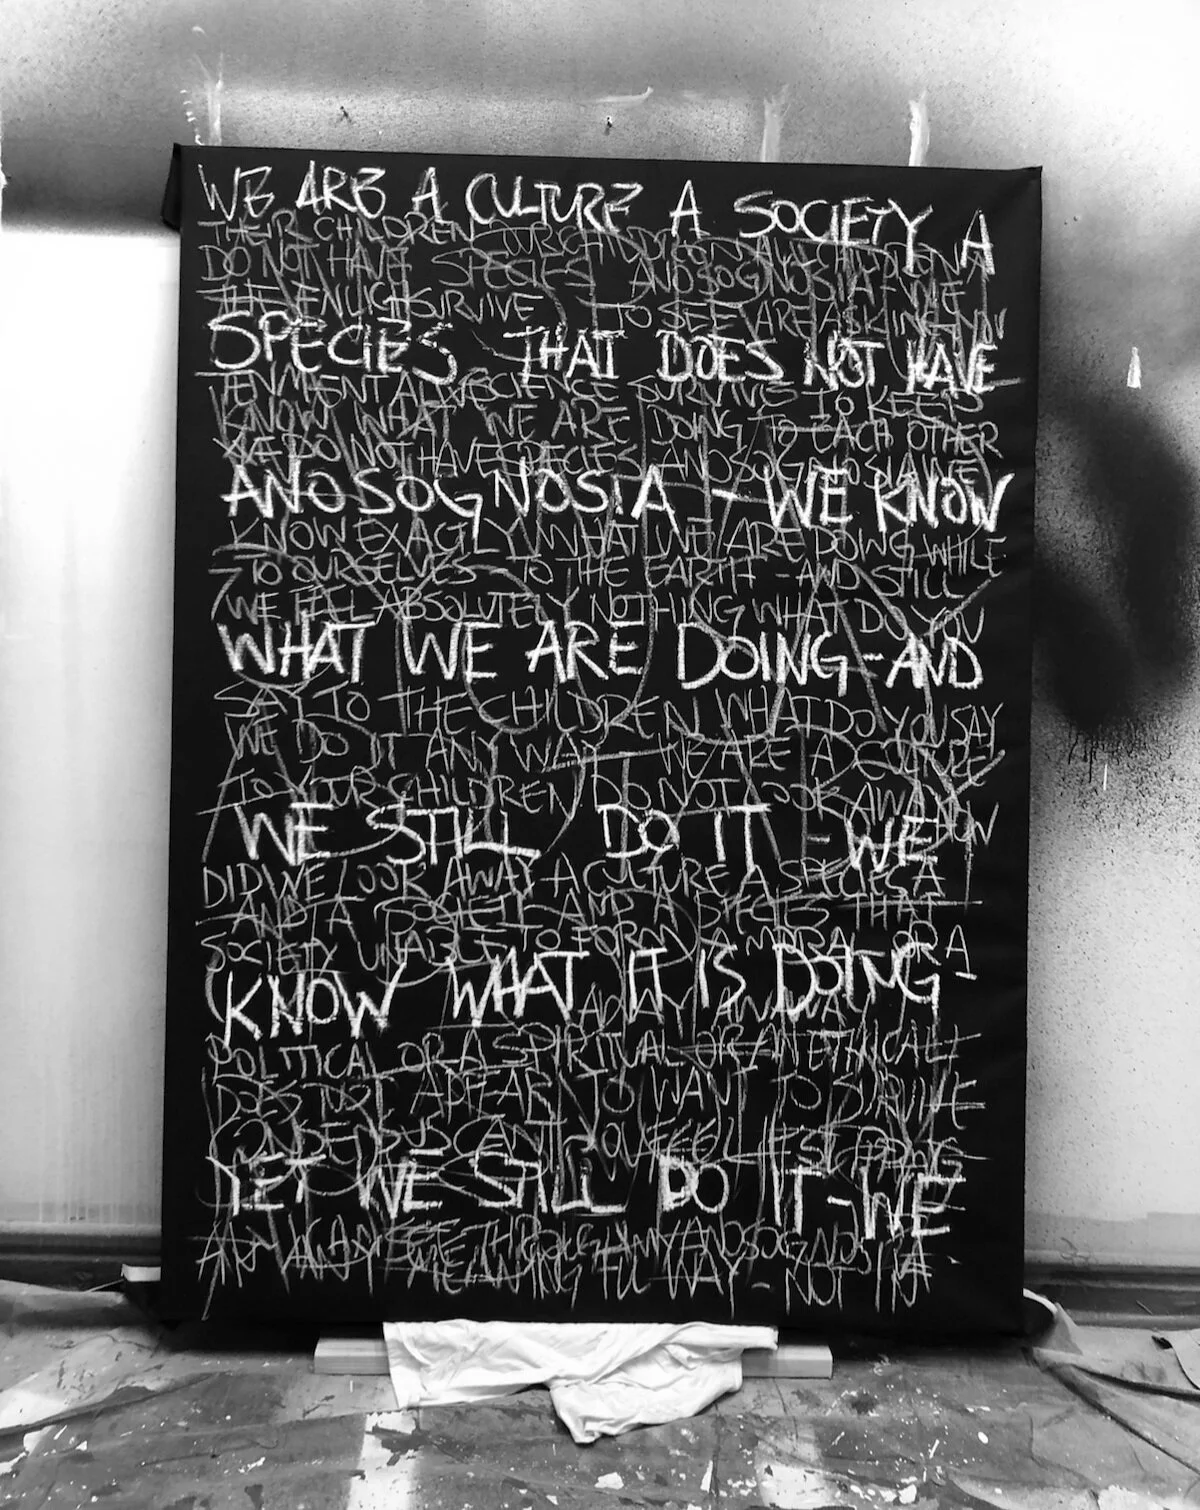 WE ARE A CULTURE A SOCIETY A
THEIR CHILDREN OUR CHILDREN
DO NOT HAVE SPECIES ANOSOGNOSIA - WE
SURVIVE TO SEE ARE ASKING YOU
SPECIES THAT DOES NOT HAVE
SCIENCE TO KEEP
KNOW WHAT WE ARE DOING TO EACH OTHER
WE DO NOT HAVE SPECIES ANOSOGNOSIA WE
ANOSOGNOSIA - WE KNOW
KNOW EXACTLY WHAT WE ARE DOING WHILE
TO OURSELVES - TO THE EARTH - AND STILL
WE ABSOLUTELY NOTHING WHAT DO YOU
WHAT WE ARE DOING - AND
SAY TO THE CHILDREN WHAT DO YOU SAY
WE DO IT ANY WAY - WE ARE A CULTURE
TO YOUR CHILDREN DO NOT LOOK AWAY HOW
WE STILL DO IT - WE
DID WE LOOK AWAY - A CULTURE A SPECIES A
AND A SOCIETY AND A SPECIES THAT
SOCIETY UNABLE TO FORM A MORAL OR A
KNOW WHAT IT IS DOING -
POLITICAL OR A SPIRITUAL OR AN ETHICAL
DOES NOT APPEAR TO WANT TO SURVIVE
CONSENSUS CANT YOU FEEL
YET WE STILL DO IT - WE
SEE THROUGH MY ANOSOGNOSIA
MEANINGFUL WAY - NOT IN A